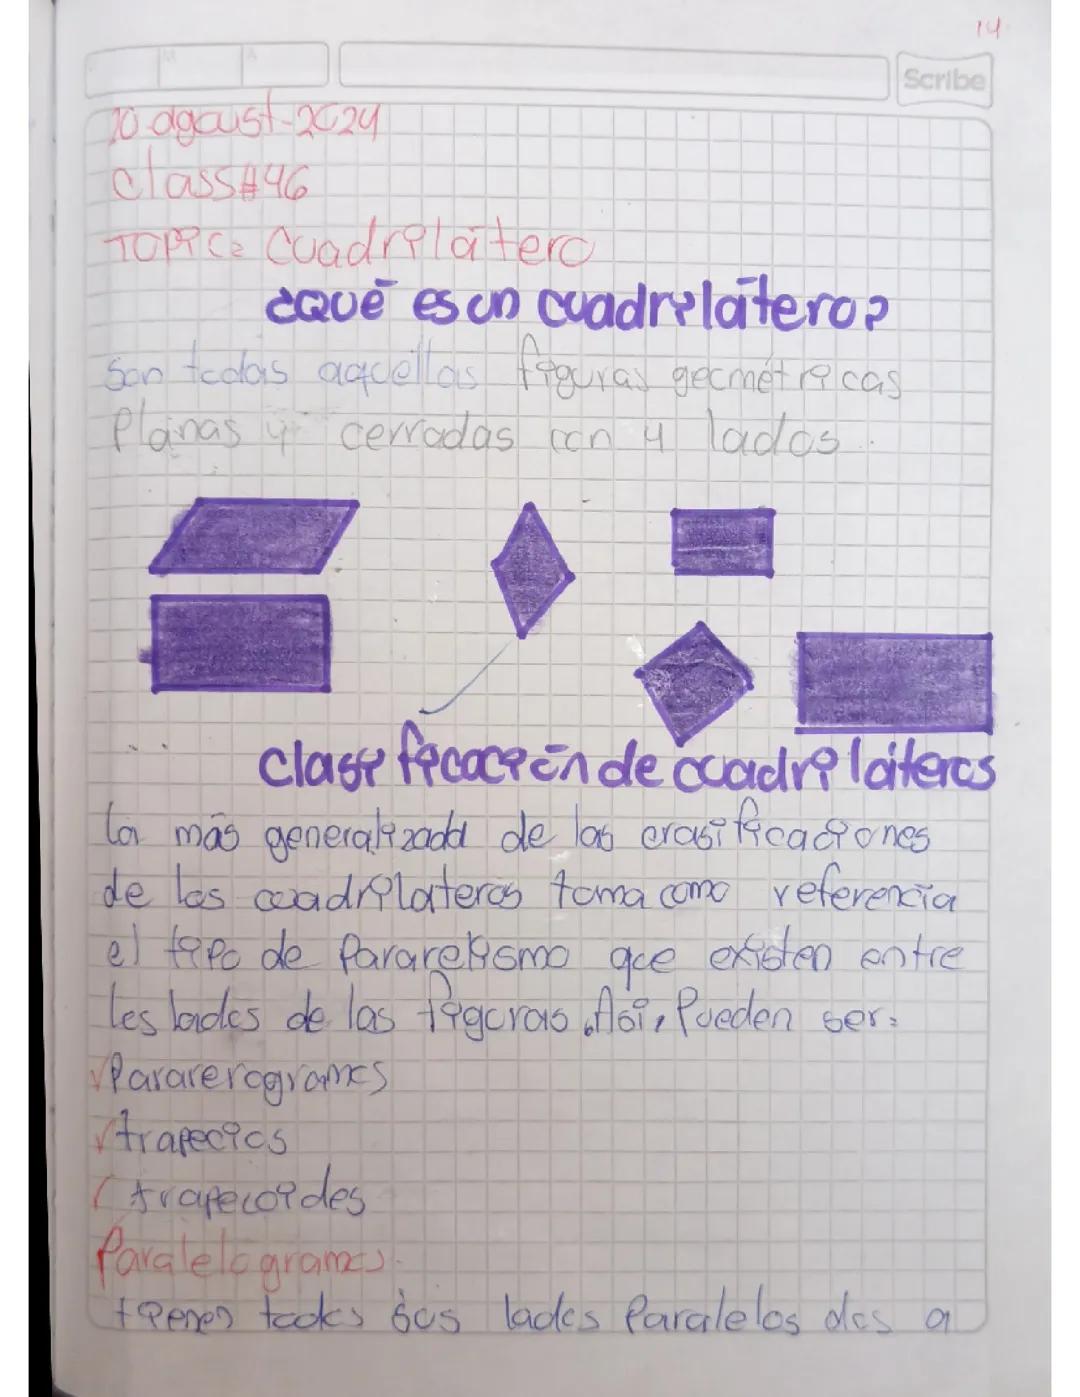 14
Scribe
20 agoust-2024
class#46
TOPIC: Cuadrilátero
¿Qué es un cuadrilátero?
Son todas aquellas figuras geométricas
Planas y cerradas con 4 lados.
Clasificación de cuadriláteros
La más generalizada de las crasificaciones
de los cuadriláteros toma como referencia
el tipo de Pararelismo que existen entre
los lados de las figuras. Así, Pueden ser:
√Pararerogramos
√trapecios
trapecoides
Paralelogramos.
tienen todos sus lados Paralelos dos a